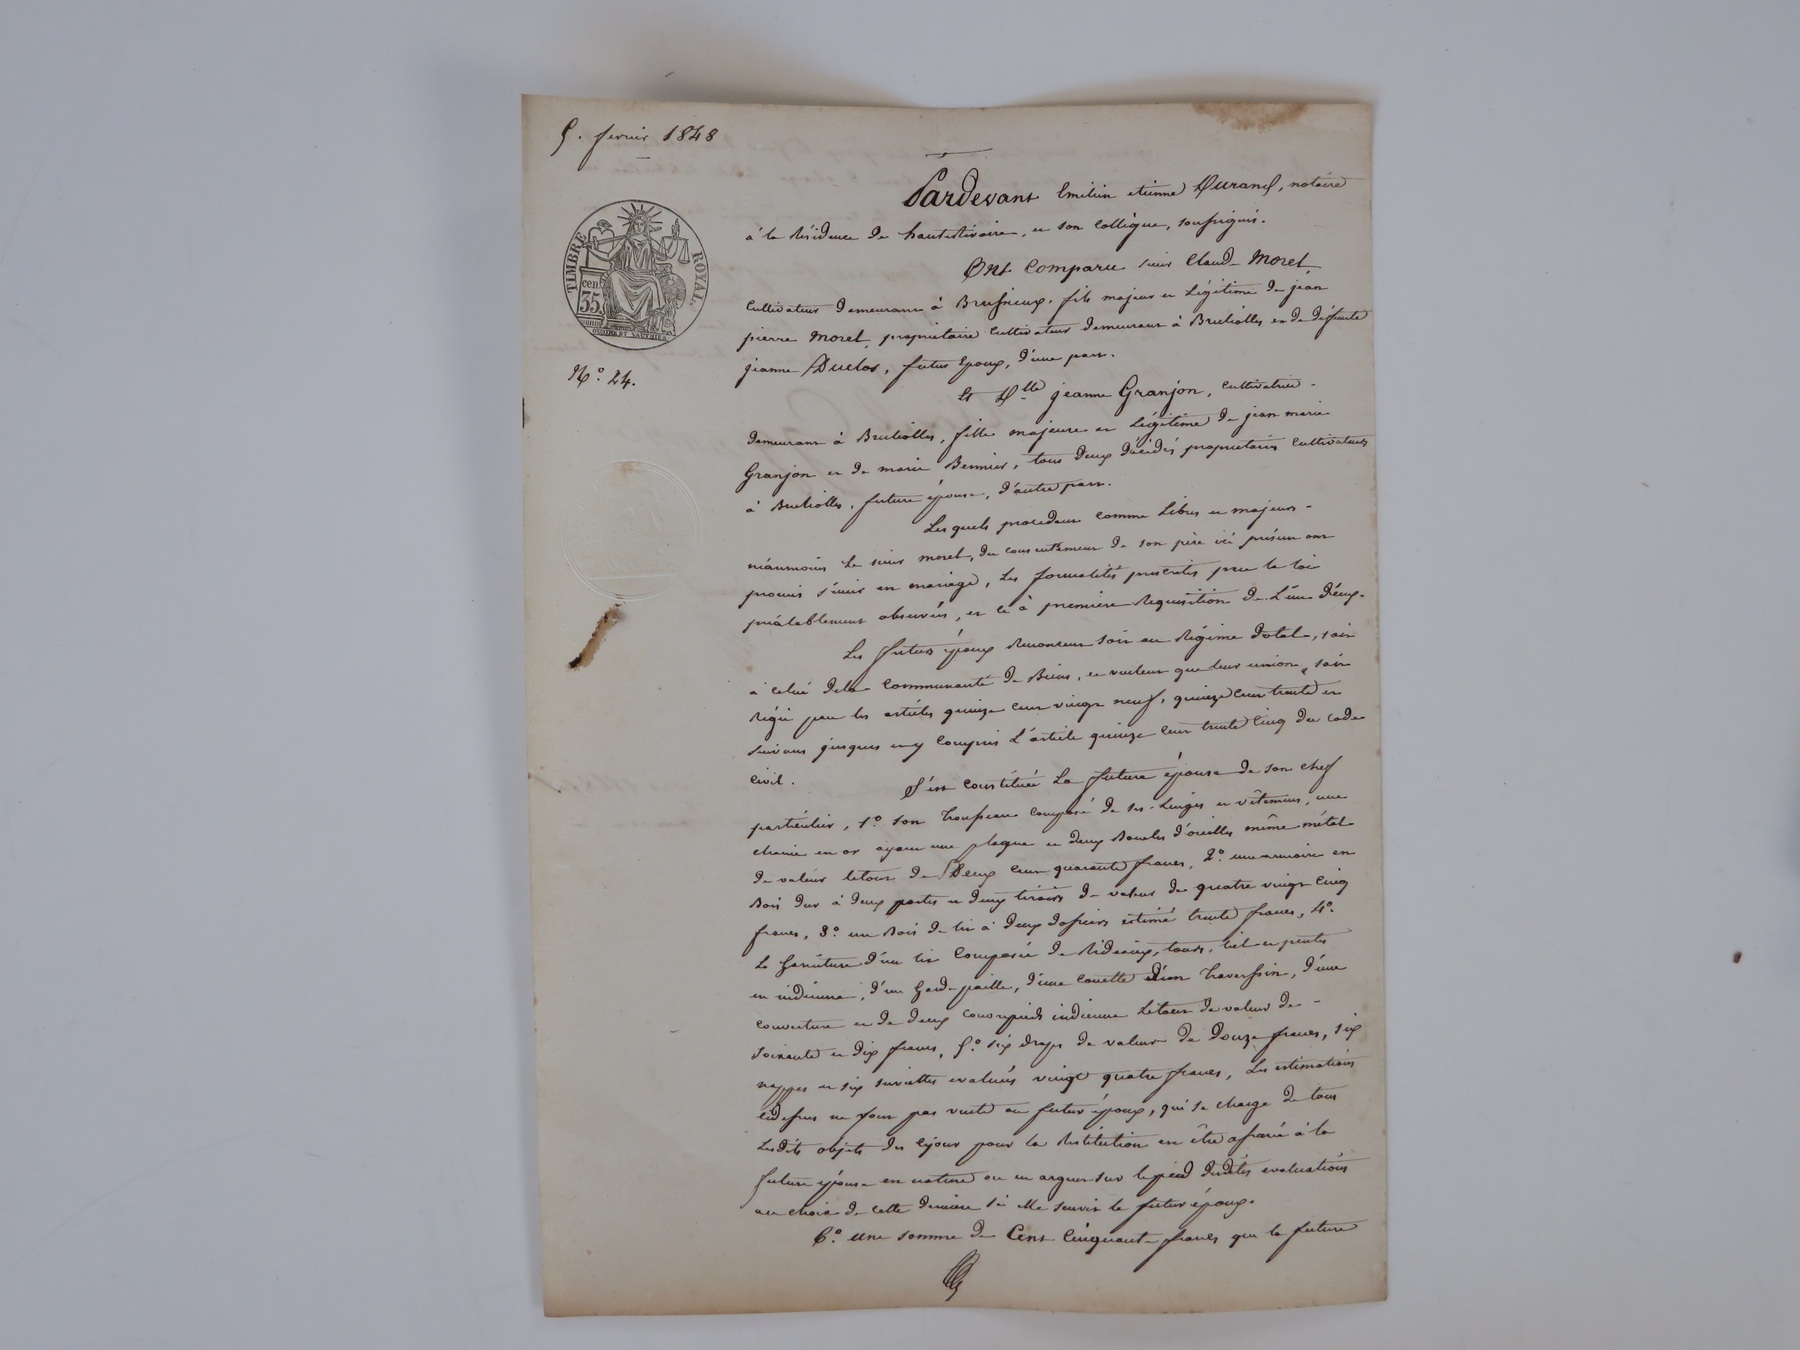 5. fevrier 1848
Pardevant Emilien etienne Durand, notaire
à la Résidence de hauterivoire, et son Collègue, soussignés.
TIMBRE ROYAL.
cen
35.
Ont Comparu sieur Claude Morel,
N.° 24.
Cultivateur demeurant à Brussieux, fils majeur et Légitime de jean
pierre Morel, propriétaire Cultivateur demeurant à Brullioles et de défunte
jeanne Duclos, futur Epoux, d'une part.
Et Dlle jeanne Granjon, Cultivatrice
demeurant à Brullioles, fille majeure et Légitime de jean marie
Granjon et de marie Bernier, tous deux décédés propriétaires Cultivateurs
à Brullioles, future épouse, d'autre part.
Lesquels procédant comme Libres et majeurs
néanmoins le sieur morel, du consentement de son père ici présent ont
promis s'unir en mariage, Les formalités prescrites par la loi
préalablement observées, et ce à première Réquisition de L'un d'eux.
Les futurs époux Renoncent soit au Régime dotal, soit
à celui dela Communauté de Biens, et veulent que leur union, soit
Régie par les articles quinze cent vingt neuf, quinze cent trente et
suivans jusques et y compris L'article quinze cent trente cinq du code
civil.
S'est constituée La future épouse de son chef
particulier, 1.° son trousseau composé de ses Linges et vêtemens, une
chaine en or ayant une plaque et deux Boucles d'oreilles même métal
de valeur letout de Deux cent quarante francs, 2.° une armoire en
Bois dur à deux portes et deux tiroirs de valeur de quatre vingt cinq
francs, 3.° un Bois de lit à deux dossiers estimé trente francs, 4.°
La Garniture d'un lit Composée de Rideaux, tours, ciel et pentes
en indienne, d'un Garde paille, d'une couette d'un traversin, d'une
couverture et de deux couvrepieds indienne Letout de valeur de
soixante et dix francs, 5.° six draps de valeur de Douze francs, six
nappes et six serviettes evaluées vingt quatre francs, Les estimations
cidessus ne font pas vente au futur époux, qui se charge de tous
Lesdits objets dès cejour pour la Restitution en être assurée à la
future épouse en nature ou en argent sur le pied desdites evaluations
au choix de cette dernière si elle survit le futur époux.
6.° une somme de Cent Cinquante francs que la future